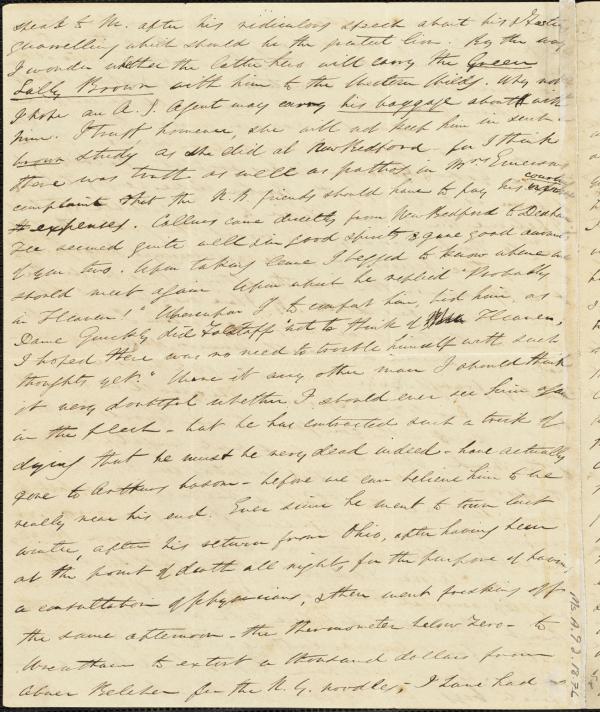 speak to M. after his ridiculous speech about his & Foster
quarrelling which should be the greatest lion. By the way
I wonder whether the latter hero will carry the Green
Sally Brown with him to the Western Wilds. Why not
I hope an A. S. Agent may carry his baggage about with
him. I trust however, she will not keep him in such a
brown study as she did at New Bedford - for I think
there was truth as well as pathos in Mrs Emerson's
complaint that the N. B friends should have to pay his
courting
expenses. Collins came directly from New Bedford to Dedham
He seemed quite well & in good spirits & gave good accounts
of you two. Upon taking leave I begged to know where we
should meet again Upon which he replied "Probably
in Heaven!" Whereupon I to comfort him, bid him, as
Dame Quickly did Falstaff "not to think of Heaven,
I hoped there was no need to trouble himself with such
thoughts yet." Were it any other man I should think
it very doubtful whether I should ever see him again
in the flesh - but he has contracted such a trick of
dying that he must be very dead indeed - have actually
gone to Arthur's bosom - before we can believe him to be
really near his end. Ever since he went to town last
winter, after his return from Ohio, after having been
at the point of death all night, for the purpose of having
a consultation of physicians, & then went preaching off
the same afternoon - the thermometer below Zero - to
Wrentham to extort a thousand dollars from
Abner Belcher for the N. Y. noodles, I have had
Ms.A.9.2.